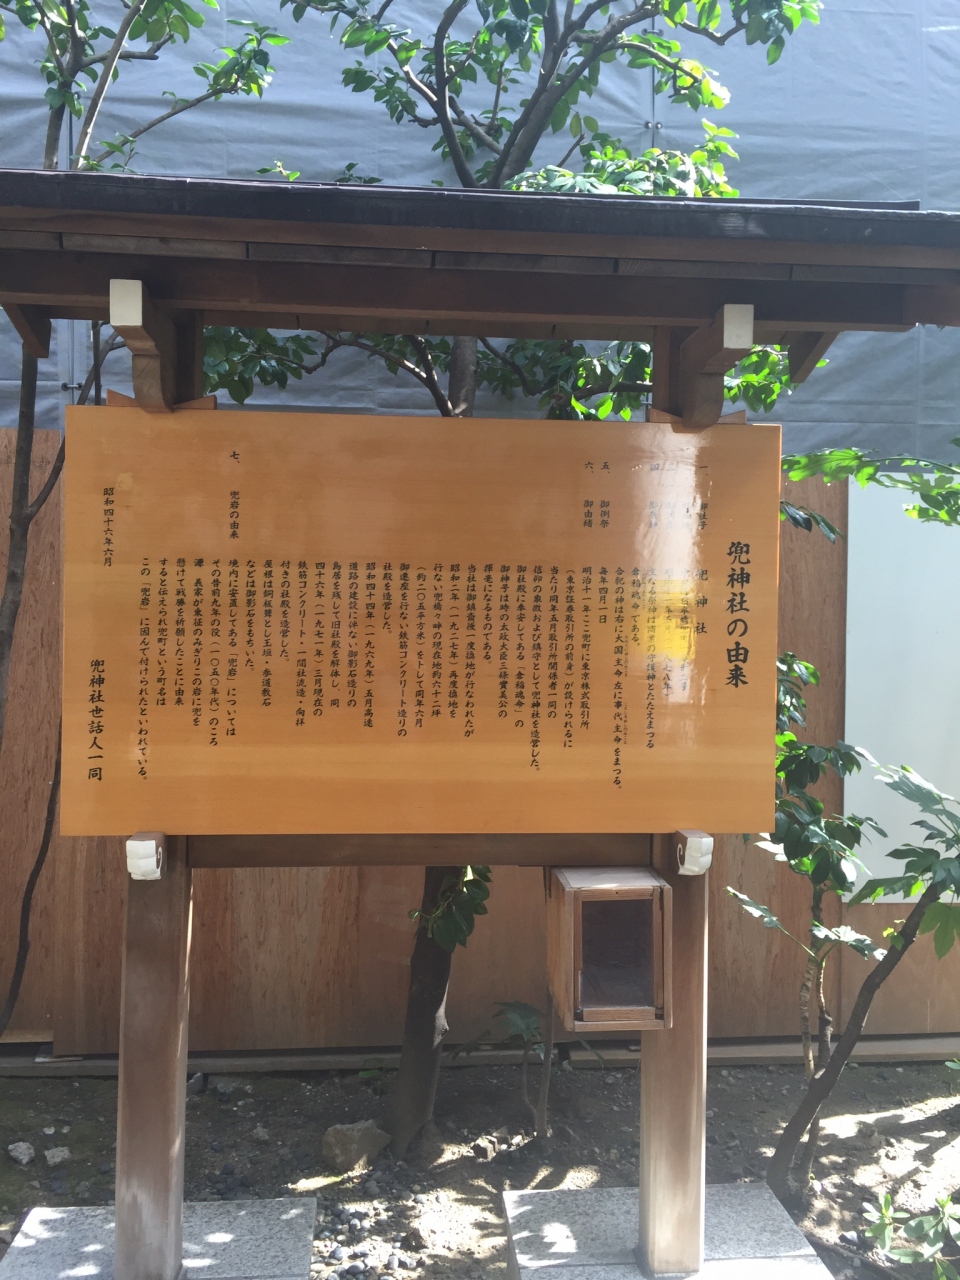 兜神社の由来
一、 御社号 兜神社
主なる祭神は商業の守護神とたたえまつる
倉稲魂命である。
合祀の神は右に大国主命 左に事代主命をまつる。
五、 御例祭 毎年四月一日
六、 御由緒 明治十一年ここ兜町に東京株式取引所
（東京証券取引所の前身）が設けられるに
当たり同年五月取引所関係者一同の
信仰の象徴および鎮守として兜神社を造営した。
御社殿に奉安してある「倉稲魂命」の
御神号は時の太政大臣三條實美公の
揮毫になるものである。
当社は御鎮斎後一度換地が行なわれたが
昭和二年（一九二七年）再度換地を
行ない兜橋々畔の現在地約六十二坪
（約二〇五平方米）をトして同年六月
御遷座を行ない鉄筋コンクリート造りの
社殿を造営した。
昭和四十四年（一九六九年）五月高速
道路の建設に伴ない御影石造りの
鳥居を残して旧社殿を解体し、同
四十六年（一九七一年）三月現在の
鉄筋コンクリート・一間社流造・向拝
付きの社殿を造営した。
屋根は銅板葺とし玉垣・参道敷石
などは御影石をもちいた。
七、 兜岩の由来 境内に安置してある「兜岩」については
その昔前九年の役（一〇五〇年代）のころ
源 義家が東征のみぎりこの岩に兜を
懸けて戦勝を祈願したことに由来
すると伝えられ兜町という町名は
この「兜岩」に因んで付けられたといわれている。
昭和四十六年六月
兜神社世話人一同